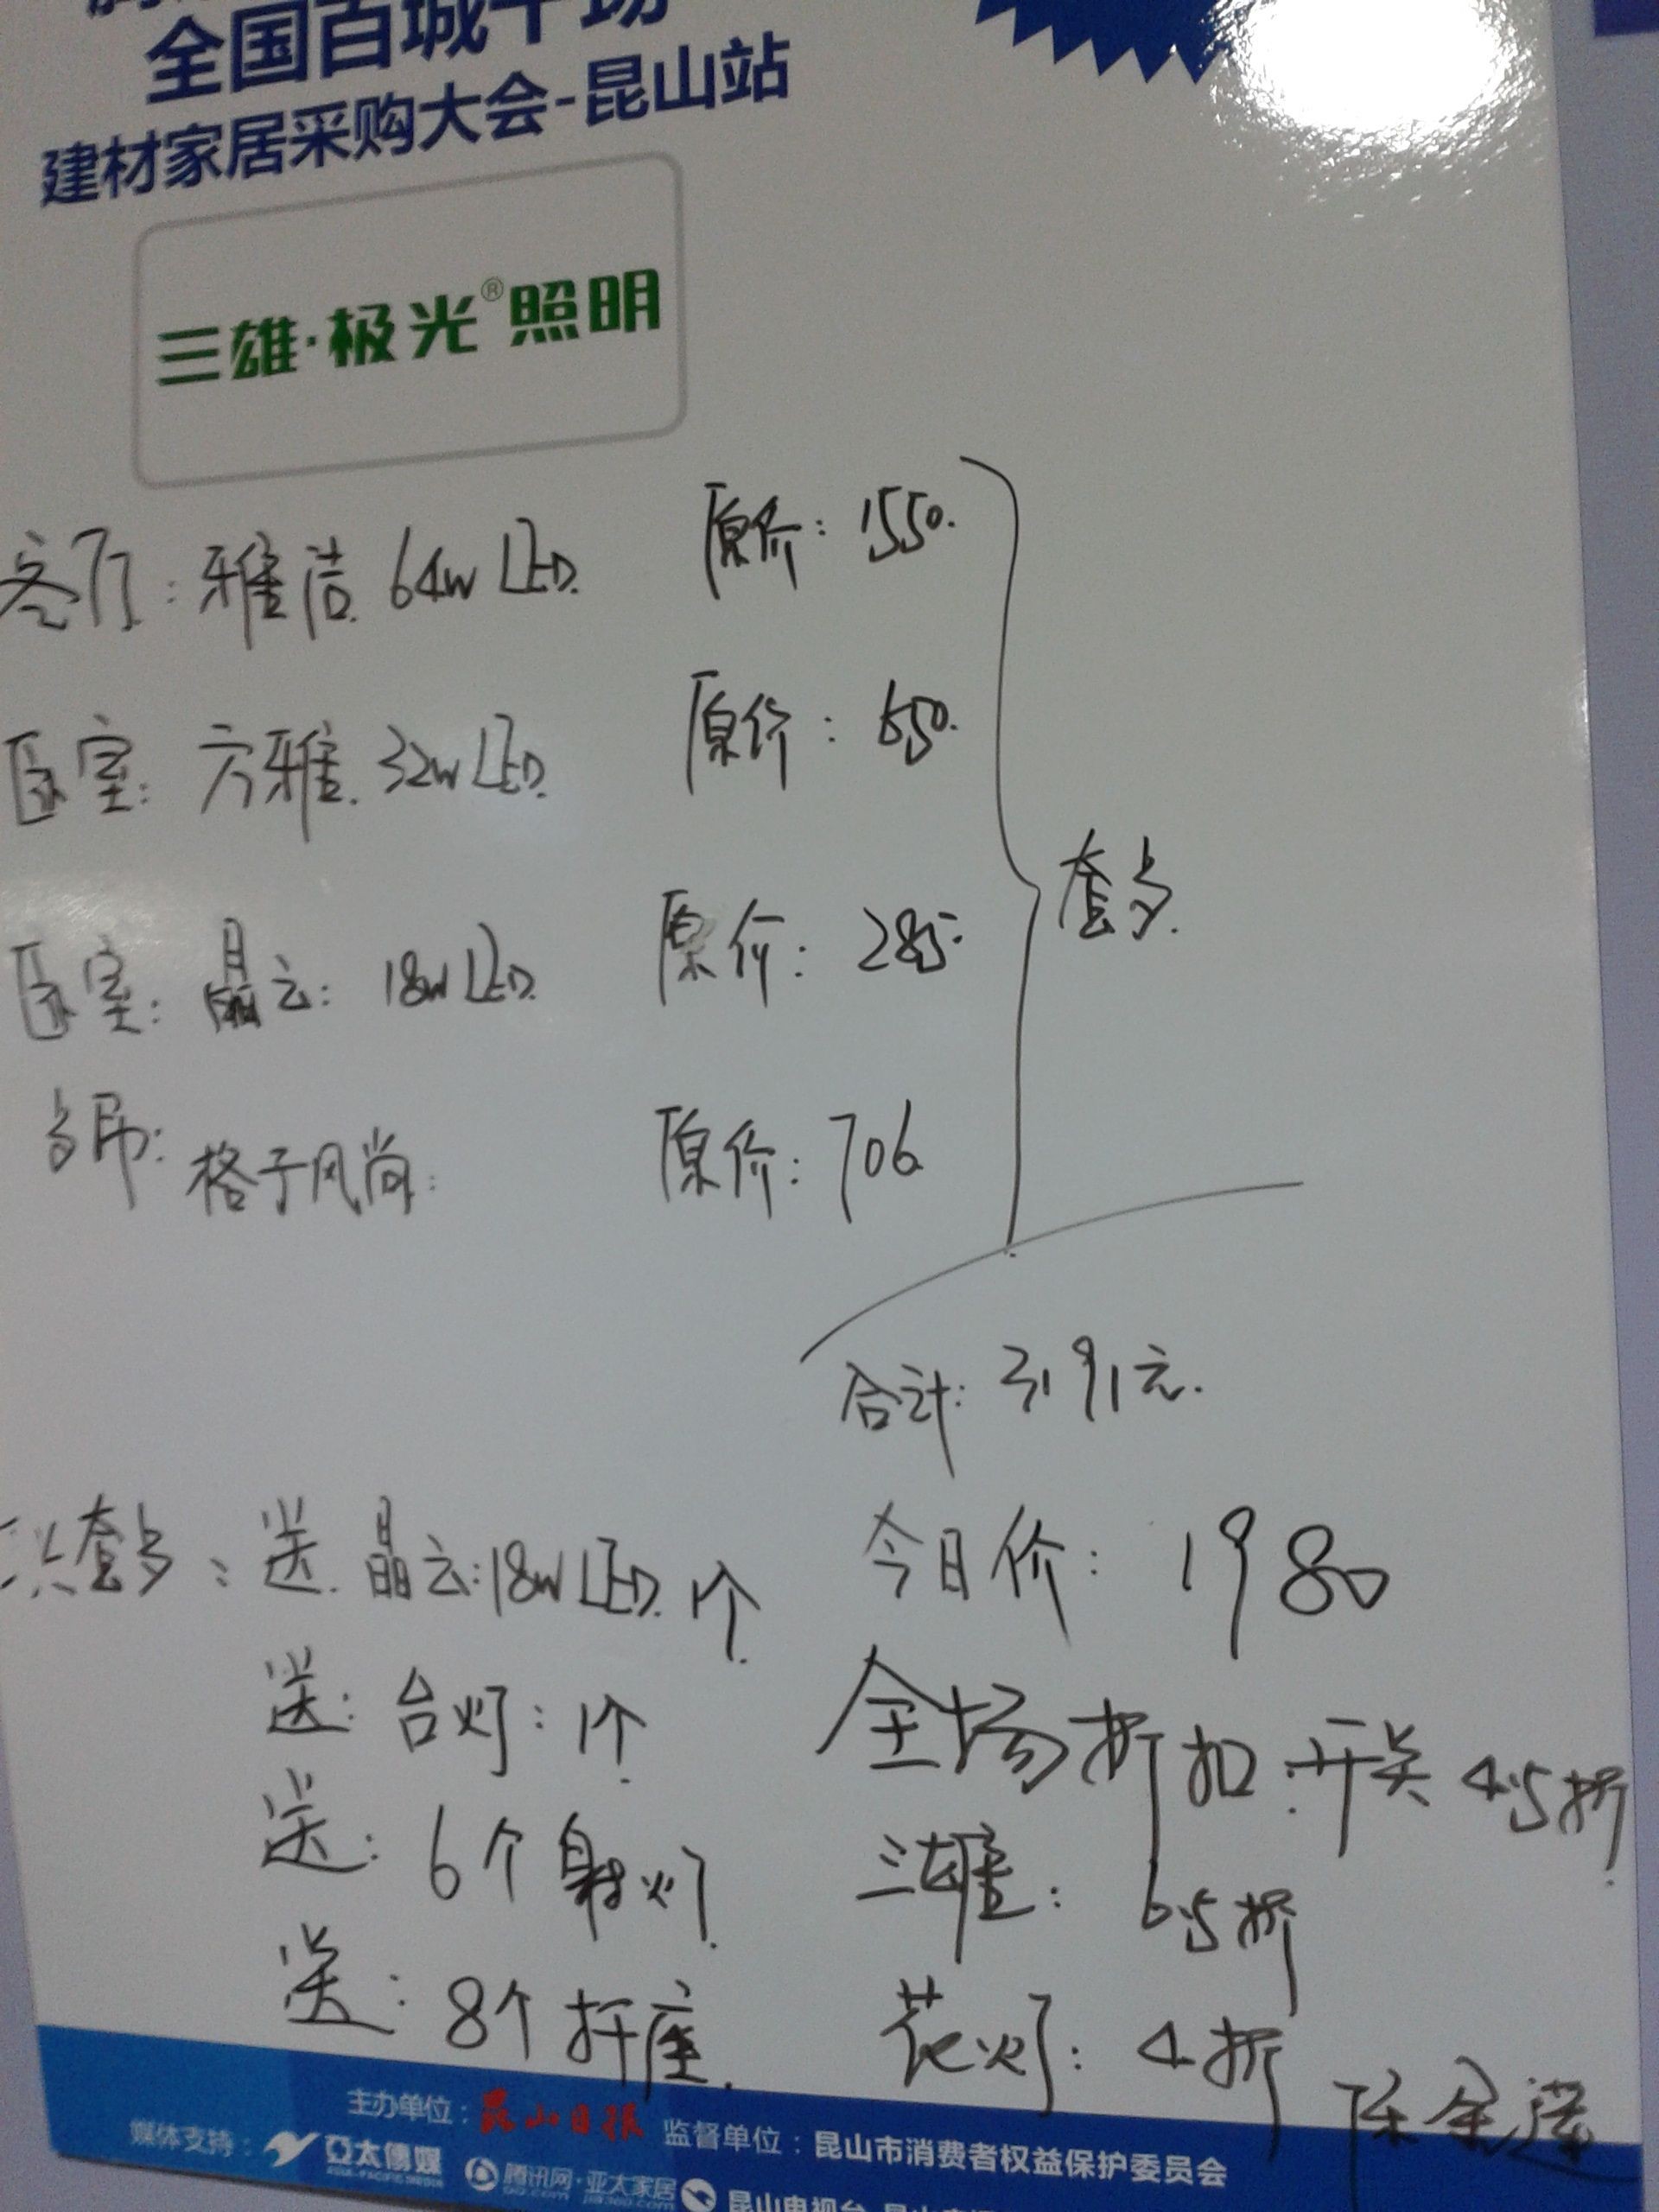 全国百城千场
建材家居采购大会-昆山站
三雄·极光®照明
客厅：雅洁 64W LED. 原价：1550.
卧室：方雅. 32W LED. 原价：650.
卧室：晶云：18W LED. 原价：285
套歺.
歺吊：格子风尚： 原价：706
合计：3191元.
套歺：送 晶云：18W LED. 1个 今日价：1980
送：台灯：1个 全场折扣：开关 4.5折
送：6个射灯 三雄：6.5折
送：8个扦座. 花灯：4折
主办单位：昆山日报 监督单位：昆山市消费者权益保护委员会
媒体支持：亞太傳媒 腾讯网·亚太家居 昆山电视台
ASIA-PACIFIC MEDIA QQ.com